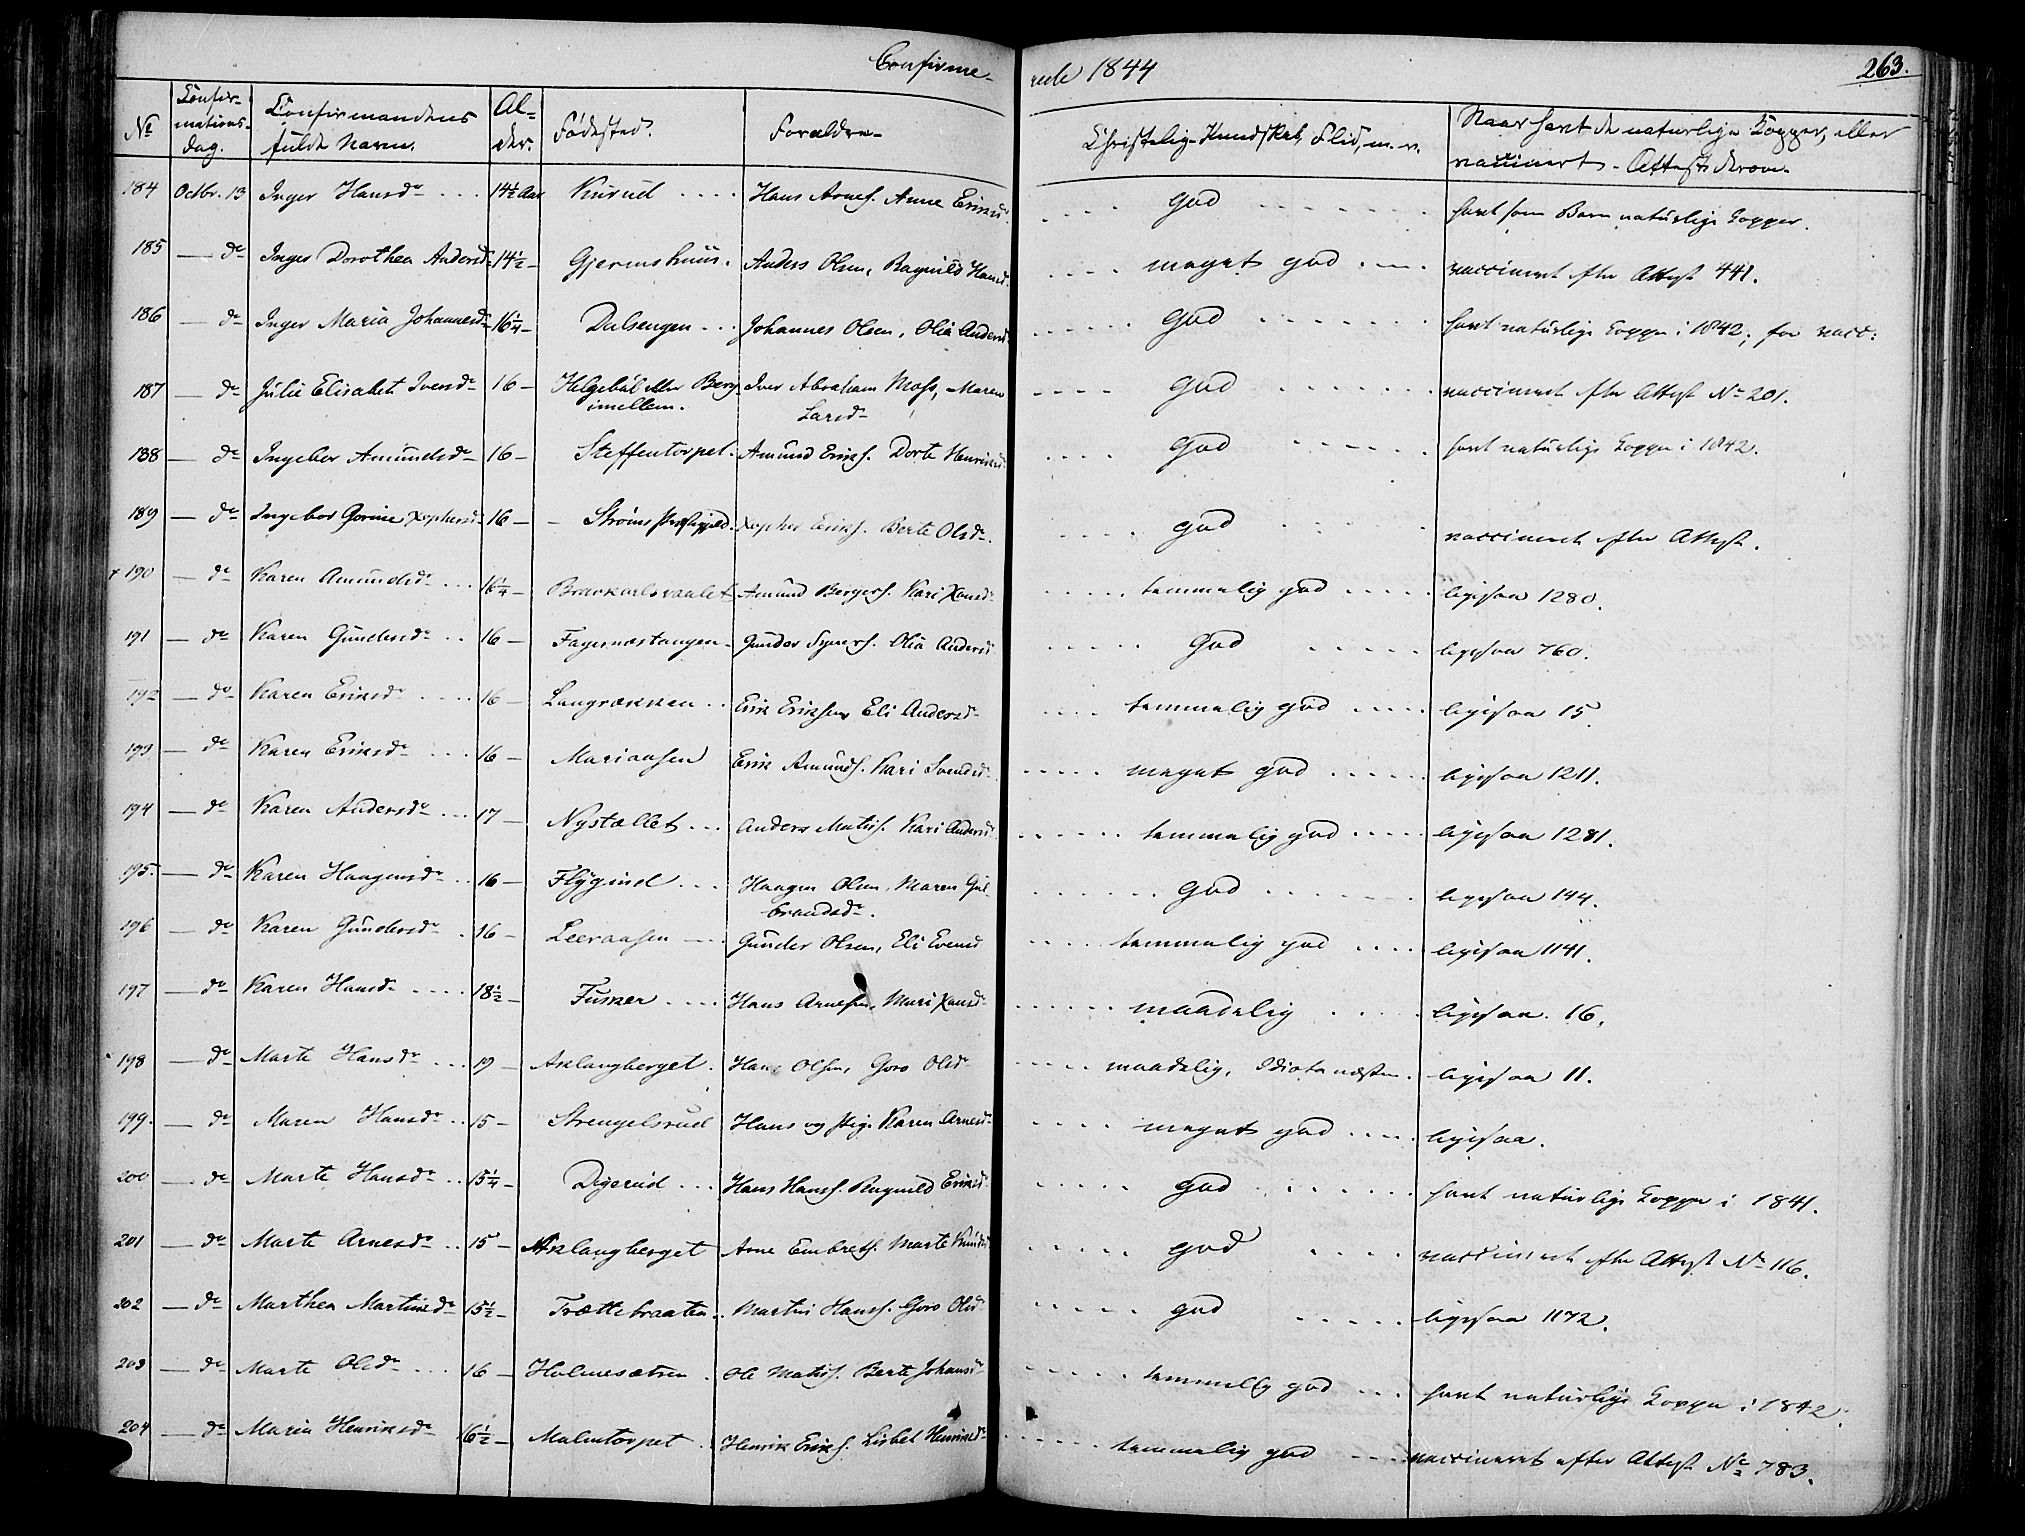 Confirme- rede 1844 263.
No Confirmations-Dag. Confirmandens fulde Navn. Alder. Fødested. Forældre. Christelig Kundskab, Flid, m.v. Naar havt de naturlige Kopper, eller vaccineret. Attest derom.
184 Octbr. 13 Inger Hansdr 14½ Aar Kurud Hans Arnes. Anne Eriksd god havt som Barn naturlige Kopper.
185 — do Inger Dorothea Andersd 14½ — Gjermshuus. Anders Olsen, Ragnild Hansd meget god vaccineret efter Attest 441.
186 — do Inger Maria Johannesd 16¼ — Dalsengen Johannes Olsen, Olia Andersd god havt naturlige Kopper i 1842; før vacc:
187 — do Julie Elisabet Iversdr 16 — Helgebøl eller Berg imellem. Iver Abraham Moss, Maren Larsdr god vaccineret efter Attest No 201.
188 — do Ingebor Amundsdr 16 — Steffentorpet. Amund Eriks. Dorte Henriksd god havt naturlige Kopper i 1842.
189 — do Ingebor Gorine Xophersd 16 — Strøms Præstegjeld. Xopher Eriks. Berte Olsdr god vaccineret efter Attest.
190 — do Karen Amundsdr 16¼ — Amund Bergers. Kari Hansdr temmelig god ligesaa 1280.
191 — do Karen Gundersdr 16 — Fagernæstangen Gunder Syvers. Olia Andersd god ligesaa 760.
192 — do Karen Eriksdr 16 — Langrækken Erik Eriksen, Eli Andersdr temmelig god ligesaa 15
193 — do Karen Eriksdr 16 — Mariaasen Erik Amunds. Kari Svendsdr meget god ligesaa 1211.
194 — do Karen Andersdr 17 — Nystællet Anders Mathis. Kari Andersd temmelig god ligesaa 1281.
195. — do Karen Haagensdr 16 — Flygind Haagen Olsen, Maren Gulbrandsdr. god ligesaa 144.
196 — do Karen Gundersdr 16 — Leeraasen Gunder Olsen, Eli Evensd temmelig god ligesaa 1141.
197 — do Karen Hansdr 18½ — Fusker Hans Arnesen, Mari Hansdr maadelig ligesaa 16.
198 — do Marte Hansdr 19 — Aslangberget. Hans Olsen, Goro Olsdr maadelig, Idiot næsten. ligesaa 11.
199. — do Maren Hansdr 15 — Strengelsrud Hans og Pige Karen Arnesdr meget god ligesaa.
200 — do Marte Hansdr 15¼ — Digerud Hans Hans. Ragnild Eriksdr god havt naturlige Kopper i 1841.
201 — do Marte Arnesdr 15 — Aslangberget Arne Embrets. Marte Knudsd god vaccineret efter Attest No 116.
202 — do Marthea Martinsdr 15½ — Trættebraaten. Martin Hans. Goro Olsdr god ligesaa 1172.
203 — do Marte Olsdr 16 — Holmesætren. Ole Mathis. Berte Johansdr temmelig god havt naturlige Kopper i 1842.
204 — do Maria Henriksdr 16½ — Malmtorpet Henrik Eriks. Lisbet Henriksdr temmelig god vaccineret efter Attest No 783.